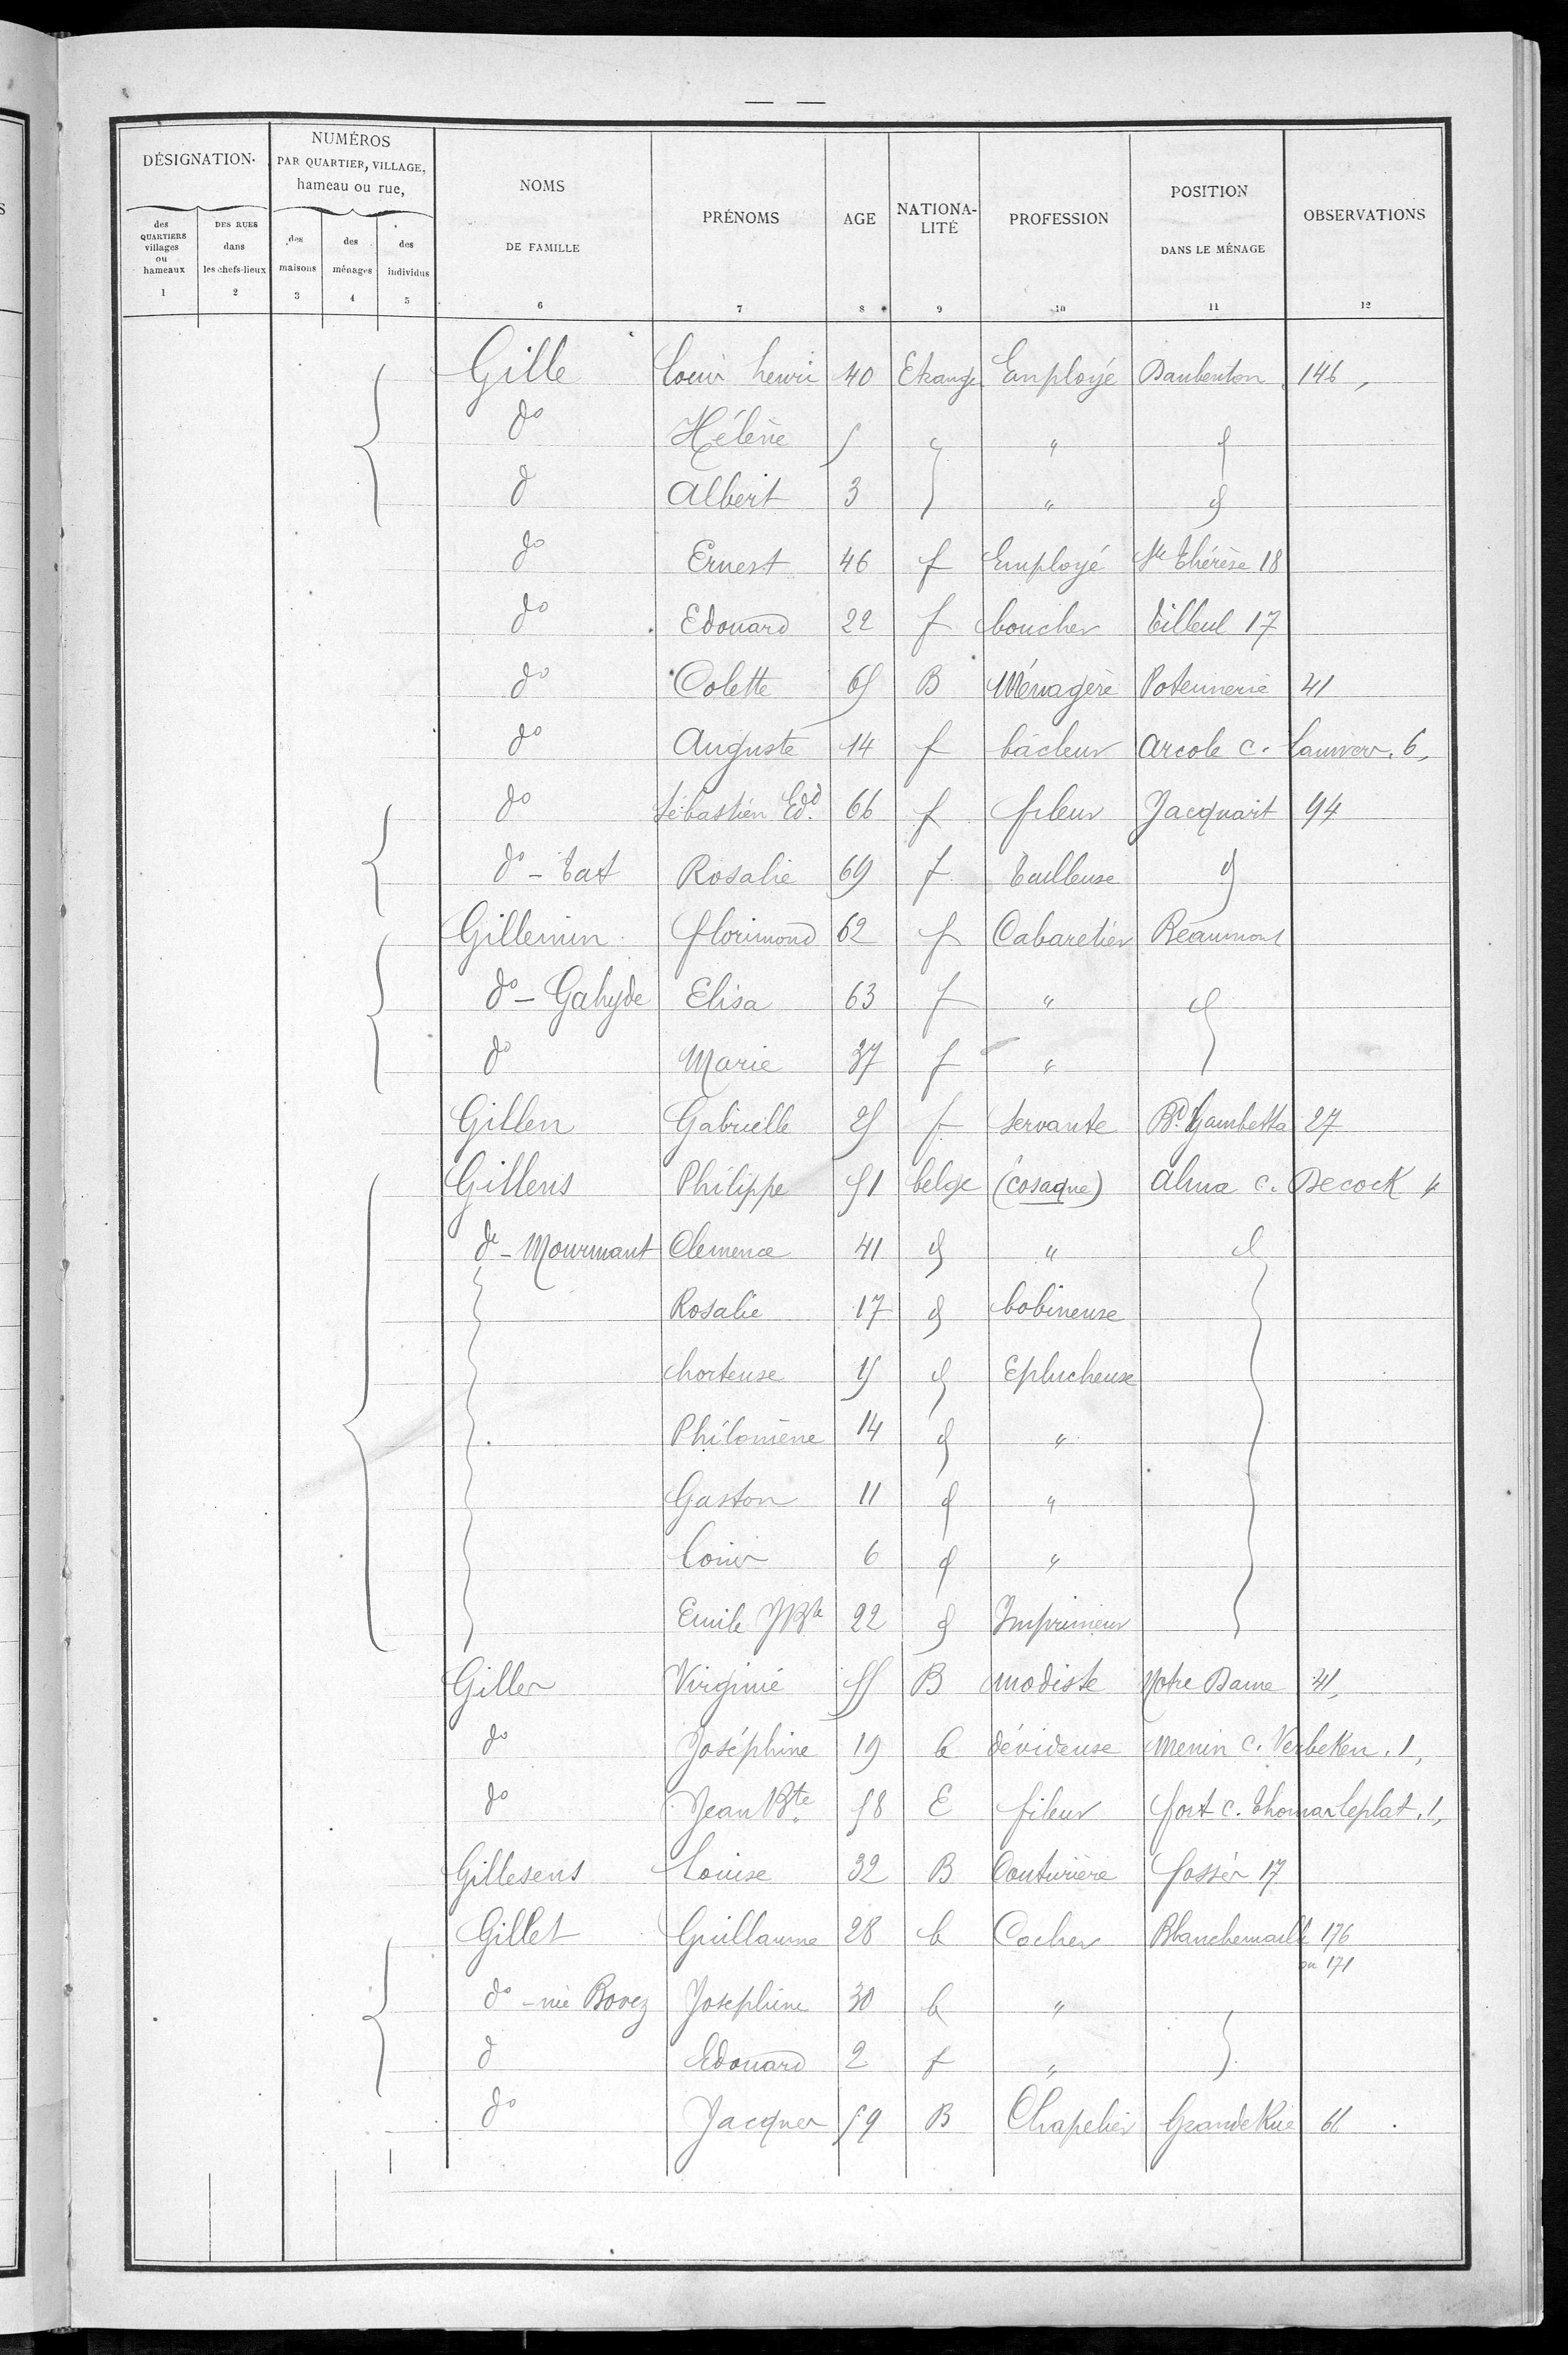 — —
DÉSIGNATION
NUMÉROS PAR QUARTIER, VILLAGE, hameau ou rue,
des QUARTIERS villages ou hameaux 1
DES RUES dans les chefs-lieux 2
des maisons 3
des ménages 4
des individus 5
NOMS DE FAMILLE 6
PRÉNOMS 7
AGE 8
NATIONALITÉ 9
PROFESSION 10
POSITION DANS LE MÉNAGE 11
OBSERVATIONS 12
Gille Louis henri 40 Etrang. Employé Daubenton 146,
do Hélène 5 " "
d Albert 3 " "
do Ernest 46 f Employé Ste Thérèse 18
do Edouard 22 f boucher Tilleul 17
do Colette 65 B Ménagère Potennerie 41
do Auguste 14 f bâcleur Arcole c. Lauwers. 6,
do Sébastien Edd. 66 f fileur Jacquart 94
do - Tat Rosalie 69 f Tailleuse d
Gillemin florimond 62 f Cabaretier Beaumont
do - Gahyde Elisa 63 f " d
do Marie 37 f "
Gillen Gabrielle 25 f Servante Bd Gambetta 27
Gillens Philippe 51 belge (cosaque) Alma c. Decock 4
do - Mourmant Clemence 41 d " d
Rosalie 17 d bobineuse
hortense 15 d Eplucheuse
Philomène 14 d "
Gaston 11 d "
Louis 6 d "
Emile JBte 22 d Imprimeur
Gilles Virginie 55 B modiste Notre Dame 41,
do Joséphine 19 b dévideuse Menin c. Verbeken. 1,
do Jean Bte 58 E fileur fort c. Thomas leplat. 1,
Gillesens Louise 32 B Couturière fossés 17
Gillet Guillaume 28 b Cocher Blanchemaille 176
ou 171
do - née Bovez Josephine 30 b "
d Edouard 2 f "
do Jacques 59 B Chapelier Grande Rue 66